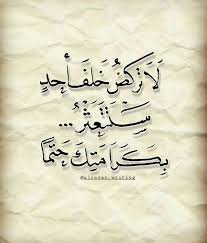 لَا تَركُضُ خَلفَ أَحدٍ
سَتَتَعَثَّرُ ...
بِكَرَامَتِكَ حَتمًا
@alrayan_writing